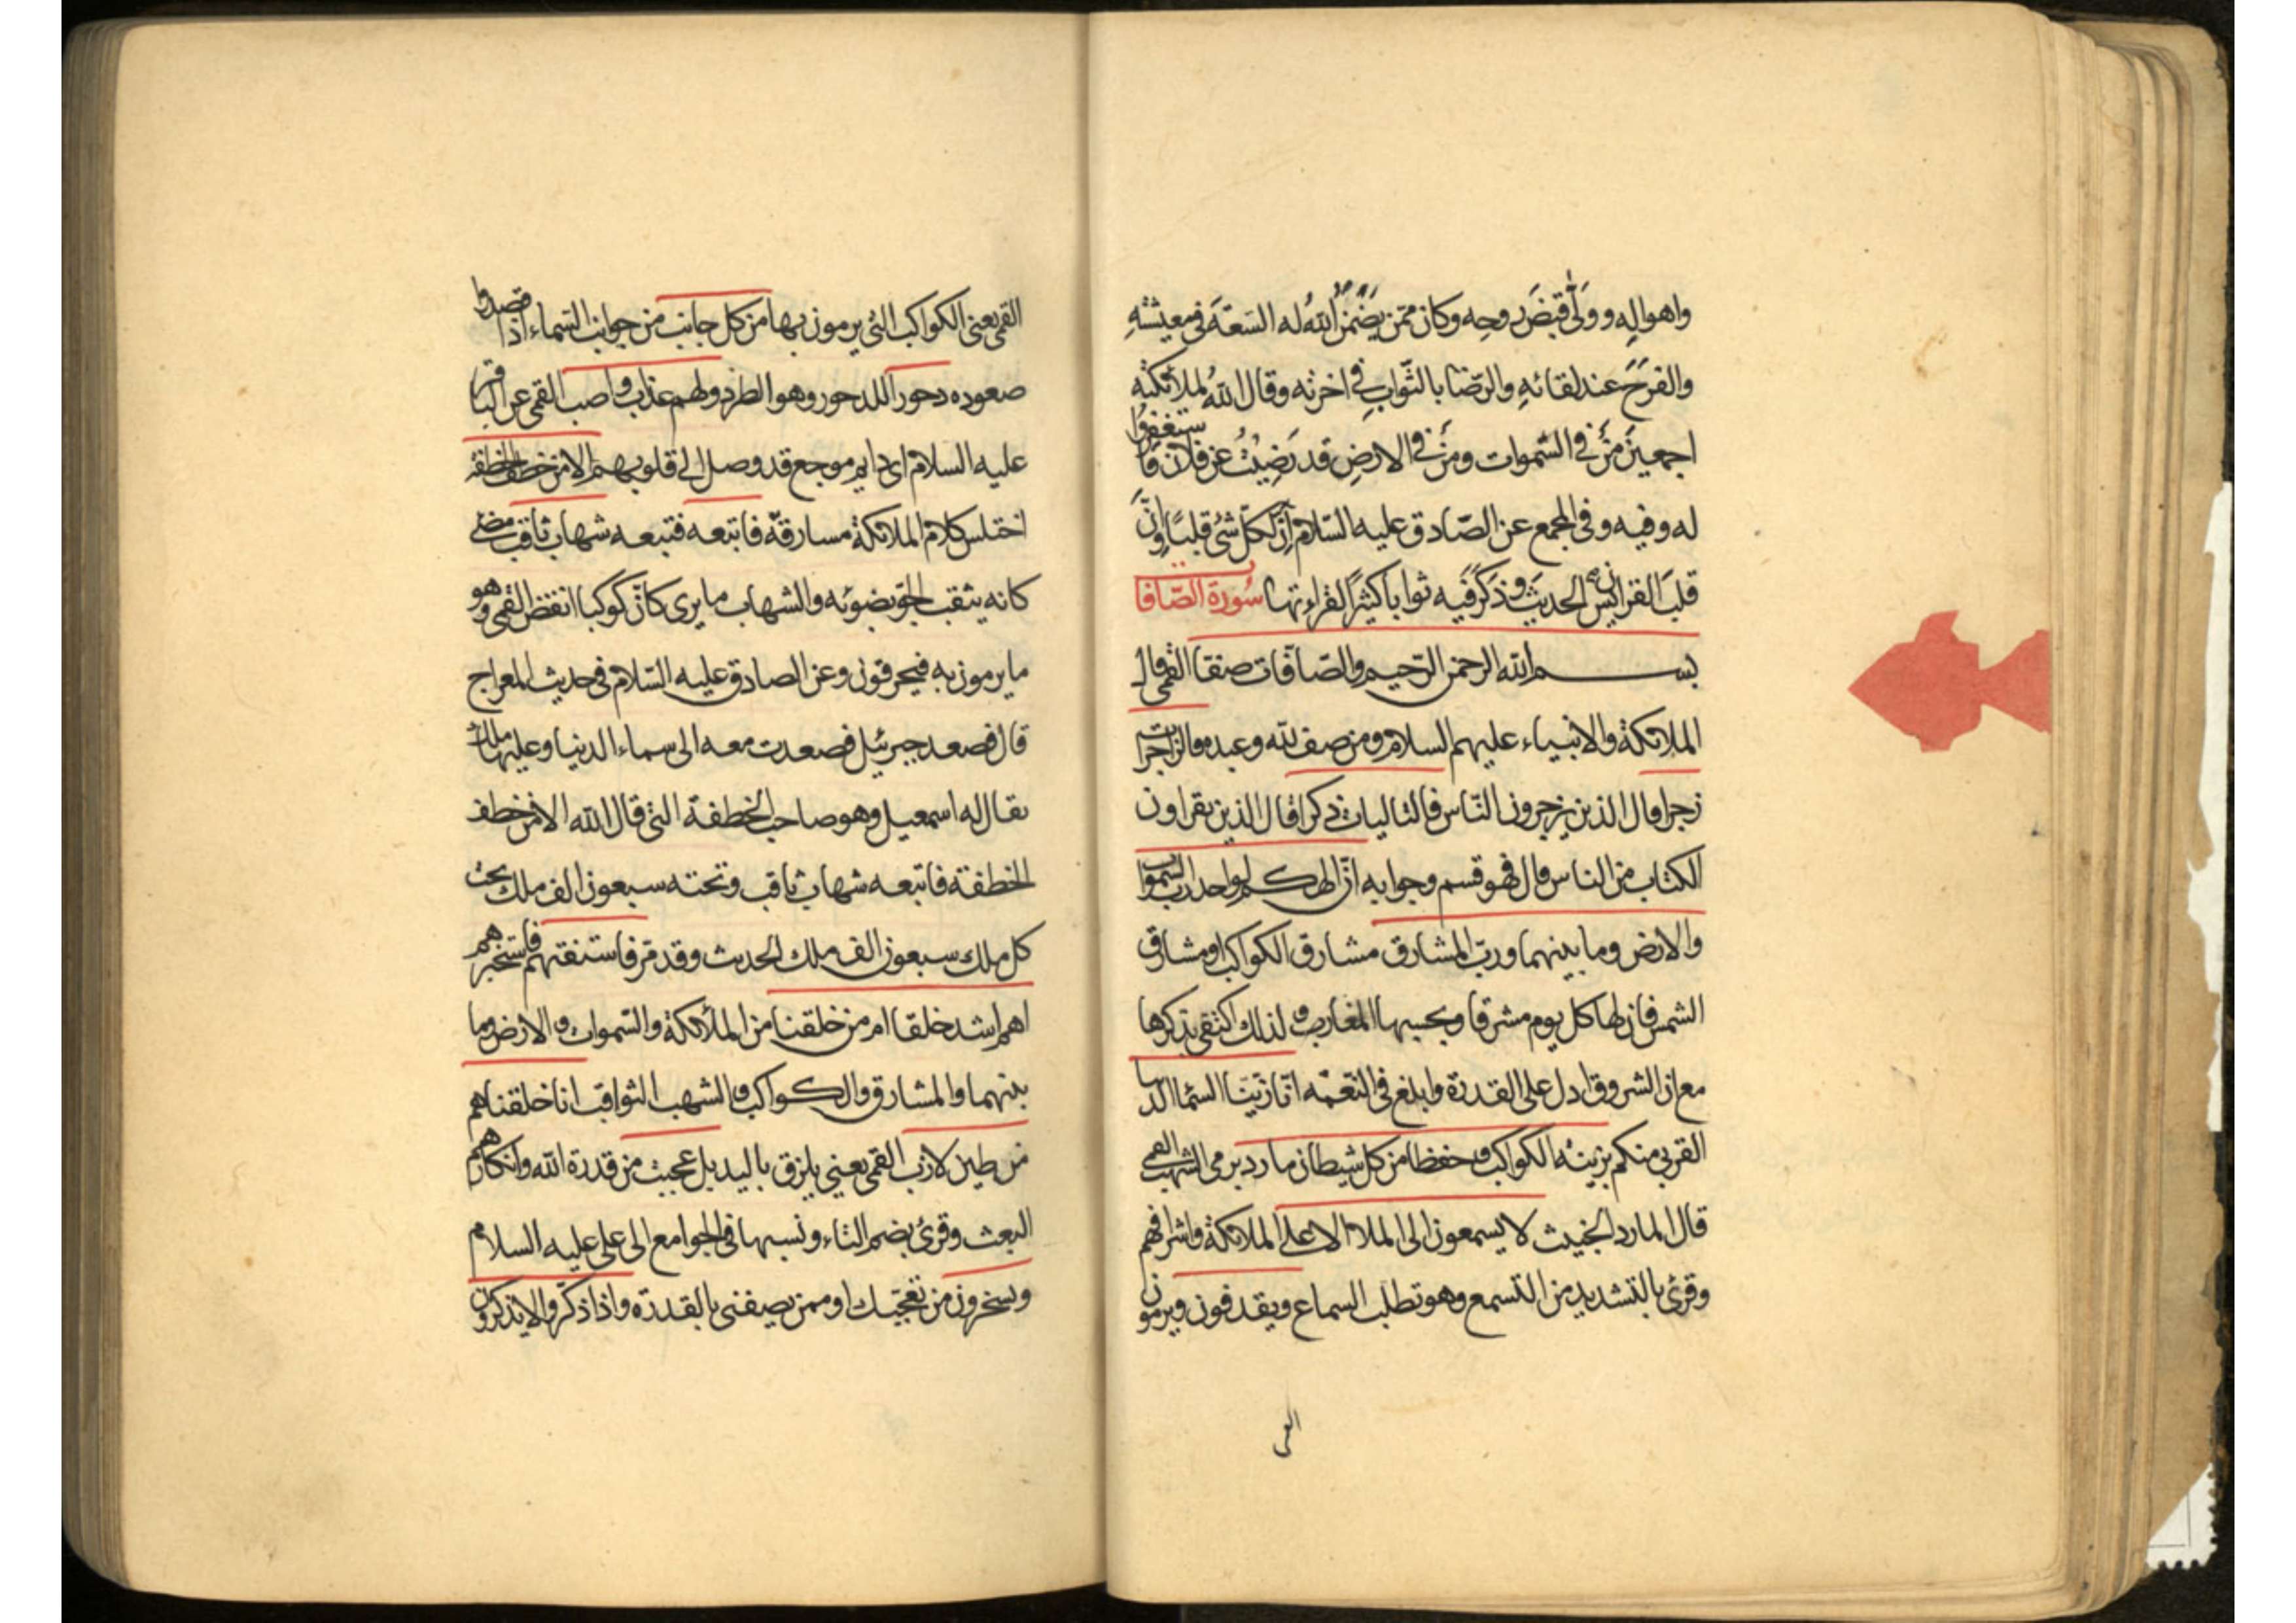 واهواله وولّى قبض روحه وكان ممّن يضمن الله له السعة في معيشته
والفرح عند لقائه والرّضا بالثّواب في اخرته وقال الله لملائكته
اجمعين من في السّموات ومن في الارض قد رضيت عن فلان فاستغفروا
له وفيه وفي المجمع عن الصّادق عليه السّلام انّ لكلّ شئ قلبا وانّ
قلب القران يس الحديث وذكر فيه ثوابا كثيرا لقراءتها سورة الصّافا
بسم الله الرحمن الرّحيم والصّافّات صفّا القمى قال
الملائكة والانبياء عليهم السلام ومن صف لله وعبده فالزاجرات
زجرا قال الذين يزجرون النّاس فالتاليات ذكرا قال الذين يقراون
الكتاب من الناس قال فهو قسم وجوابه انّ الهكم لواحد رب السّموات
والارض وما بينهما وربّ المشارق مشارق الكواكب او مشارق
الشمس فان لها كل يوم مشرقا وبحسبها المغارب ولذلك اكتفى بذكرها
مع ان الشروق ادل على القدرة وابلغ في النّعمة انّا زيّنّا السّماء الدنيا
القربى منكم بزينة الكواكب وحفظا من كل شيطان مارد برمى الشهب القمى
قال المارد الخبيث لا يسمعون الى الملاء الاعلى الملائكة واشرافهم
وقرئ بالتشديد من التسمع وهو تطلب السماع ويقذفون ويرمون
القمى
القمى يعنى الكواكب التى يرمون بها من كل جانب من جوانب السّماء اذا قصدوا
صعوده دحورا للدحور وهو الطرد ولهم عذاب واصب القمى عن الباقر
عليه السلام اى دايم موجع قد وصل الى قلوبهم الا من خطف الخطفة
اختلس كلام الملائكة مسارقة فاتبعه فتبعه شهاب ثاقب مضئ
كانه يثقب الجوّ بضوئه والشهاب ما يرى كانّ كوكبا انقض القمى وهو
ما يرمون به فيحرقون وعن الصادق عليه السّلام في حديث المعراج
قال فصعد جبرئيل فصعدت معه الى سماء الدنيا وعليها ملك
يقال له اسمعيل وهو صاحب الخطفة التى قال الله الا من خطف
الخطفة فاتبعه شهاب ثاقب وتحته سبعون الف ملك تحت
كل ملك سبعون الف ملك الحديث وقد مرّ فاستفتهم فاستخبرهم
اهم اشد خلقا ام من خلقنا من الملائكة والسّموات والارض وما
بينهما والمشارق والكواكب والشهب الثواقب انا خلقناهم
من طين لازب القمى يعنى يلزق باليد بل عجبت من قدرة الله وانكارهم
البعث وقرئ بضم التاء ونسبها في الجوامع الى على عليه السلام
ويسخرون من تعجّبك او ممن يصفنى بالقدرة واذا ذكّروا لا يذكرون